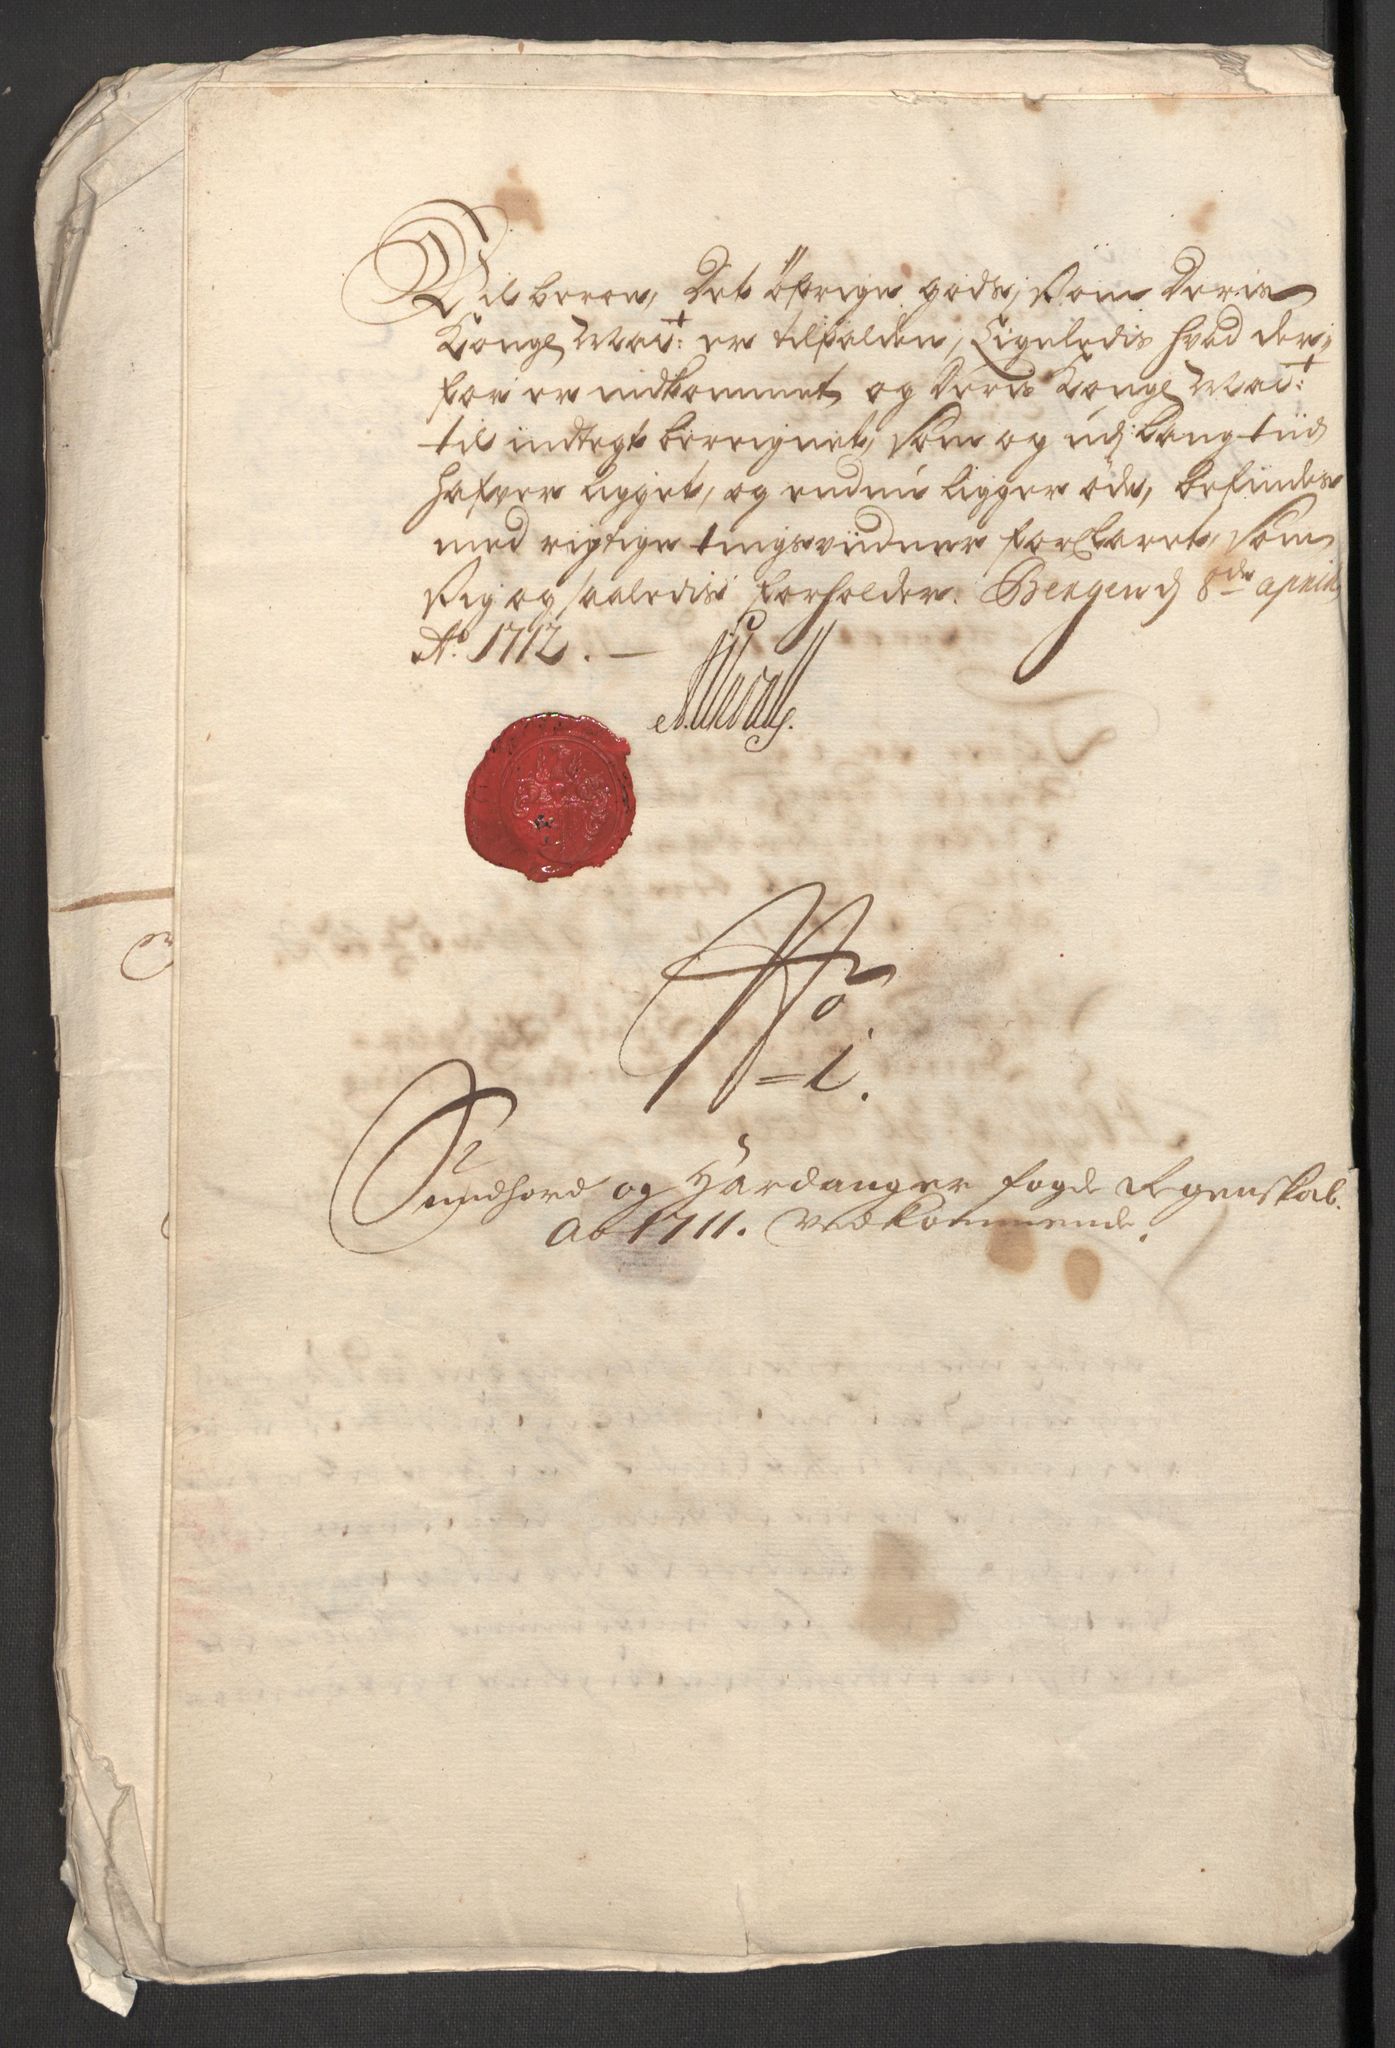 Vilberon, Det öfrige gods, Som Deris
Kongl Mai:t er tilfalden, Ligeledis hvad der,,
for er indkommet, og Deris Kongl Mai:t
til indtegt berregnet, Som og udj lang tiid
hafver ligget, og endnu ligger öde, befindes
med rigtige tingsvidner forklaret, Som
Sig og saaledis forholder. Bergen d 8de april
Ao. 1712. —
No
= 1.
Sundhord og Hardanger fogde Regenskab.
Ao 1711. vedkommende.